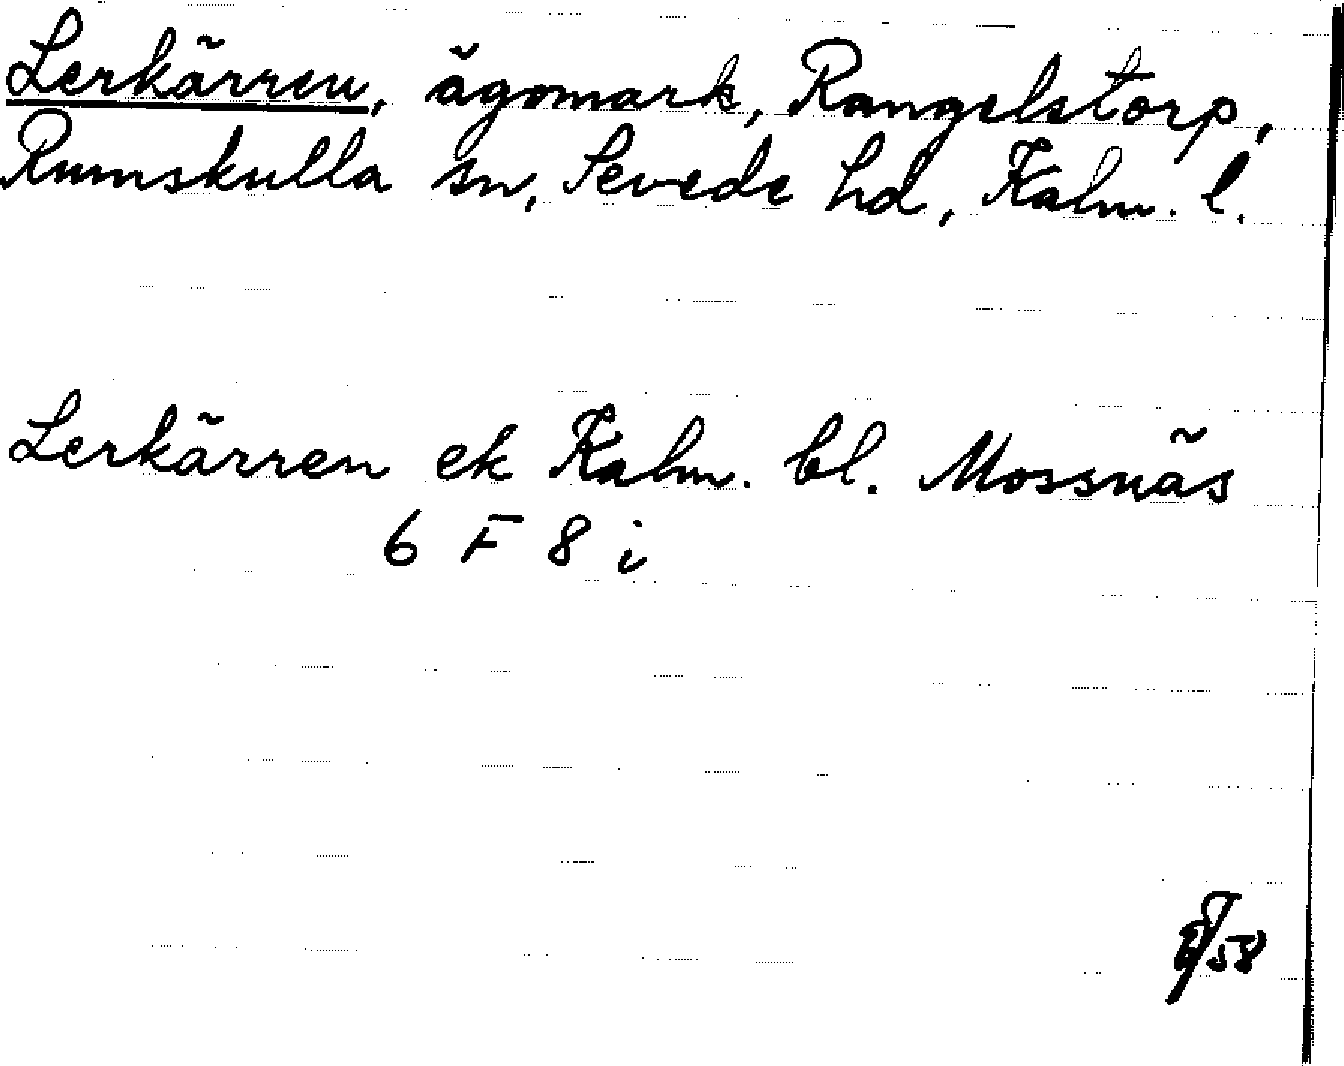 Lerkärren, ägomark, Rangelstorp,
Rumskulla sn, Sevede hd, Kalm. l.
Lerkärren ek Kalm. bl. Mossnäs
6 F 8 i
58